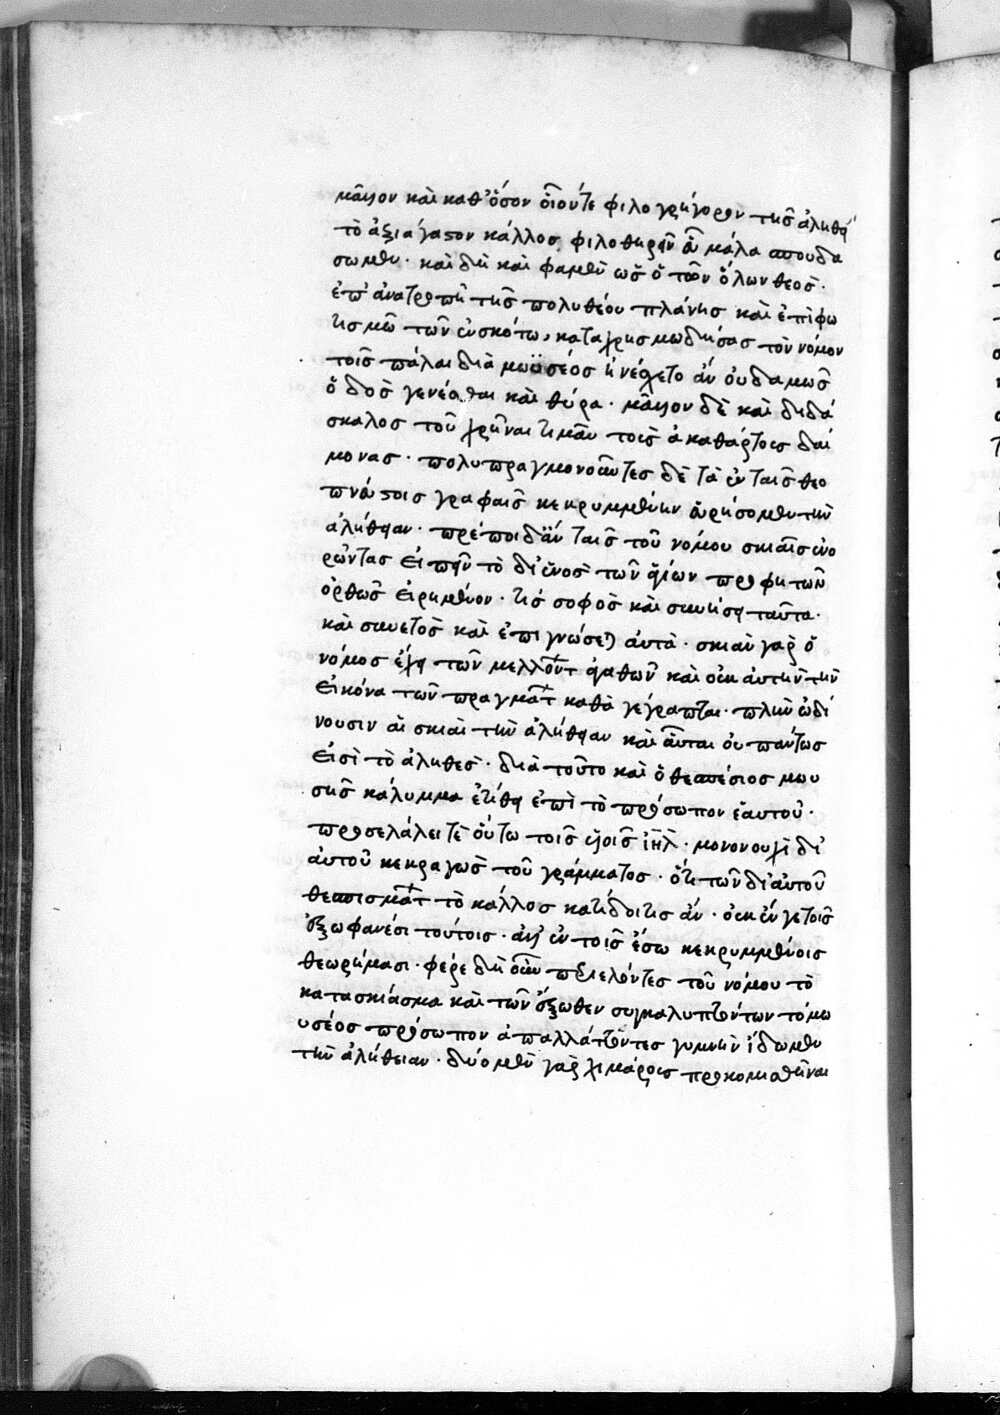 μᾶλλον καὶ καθ' ὅσον οἷόντε φιλογρήγορον τῆς ἀληθεί
τὸ ἀξιάγαστον κάλλος φιλοθηρεῖν εὖ μάλα σπουδά
σωμεν· καὶ δὴ καὶ φαμὲν ὡς ὁ τῶν ὅλων θεὸς·
ἐπ' ἀνατροπῇ τῆς πολυθέου πλάνης καὶ ἐπὶ φω
τισμῶ τῶν ἐν σκότω, καταχρησμωδήσας τὸν νόμον
τοῖς πάλαι διὰ μωϋσέος ἠνέσχετο ἂν οὐδαμῶς
ὁδὸς γενέσθαι καὶ θύρα· μᾶλλον δὲ καὶ διδά
σκαλος τοῦ χρῆναι τιμᾶν τοῖς ἀκαθάρτοις δαί
μονας· πολυπραγμονοῦντες δὲ τὰ ἐν ταῖς θεο
πνεύστοις γραφαῖς κεκρυμμένην εὑρήσομεν τὴν
ἀλήθειαν· πρέποι δ' ἂν ταῖς τοῦ νόμου σκιαῖς ἐνο
ρῶντας εἰπεῖν τὸ δι' ἑνὸς τῶν ἁγίων προφητῶν
ὀρθῶς εἰρημένον· τίς σοφὸς καὶ συνήσει ταῦτα·
καὶ συνετὸς καὶ ἐπιγνώσεται αὐτὰ· σκιὰν γὰρ ὁ
νόμος ἔχει τῶν μελλόντ ἀγαθῶν καὶ οὐκ αὐτὴν τὴν
εἰκόνα τῶν πραγμάτ καθὰ γέγραπται· πλὴν ὠδί
νουσιν αἱ σκιαὶ τὴν ἀλήθειαν καὶ αὗται οὐ πάντως
εἰσὶ τὸ ἀληθὲς· διὰ τοῦτο καὶ ὁ θεσπέσιος μωυ
σῆς κάλυμμα ἐτίθει ἐπὶ τὸ πρόσωπον ἑαυτοῦ·
προσελάλει τὲ οὕτω τοῖς υἱοῖς ἰηλ· μονονουχὶ δι'
αὐτοῦ κεκραγὼς τοῦ γράμματος· ὅτι τῶν δι' αὐτοῦ
θεσπισμάτ τὸ κάλλος κατίδοι τις ἂν· οὐκ ἔν γε τοῖς
ἔξω φανέσι τούτοις· ἀλλ' ἐν τοῖς ἔσω κεκρυμμένοις
θεωρήμασι· φέρε δὴ οὖν περιελόντες τοῦ νόμου τὸ
κατασκίασμα καὶ τῶν ἔξωθεν συγκαλυπτόντων τὸ μω
υσέος πρόσωπον ἀπαλλάττοντες γυμνὴν ἴδωμεν
τὴν ἀλήθειαν· δύο μὲν γὰρ χιμάροις προκομισθῆναι